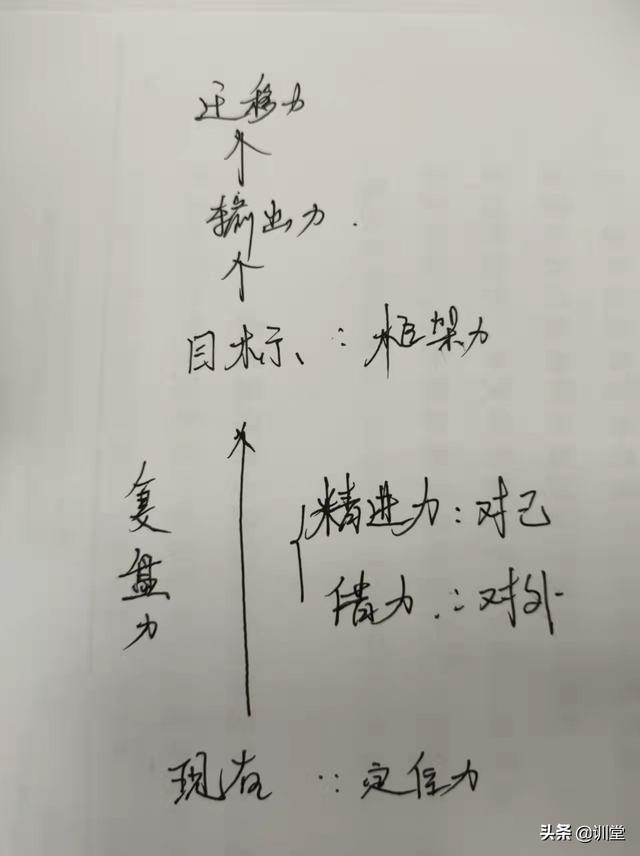 迁移力
输出力.
目标、:框架力
复盘力
精进力:对己
借力.:对外
现在 ::定位力
头条 @训堂